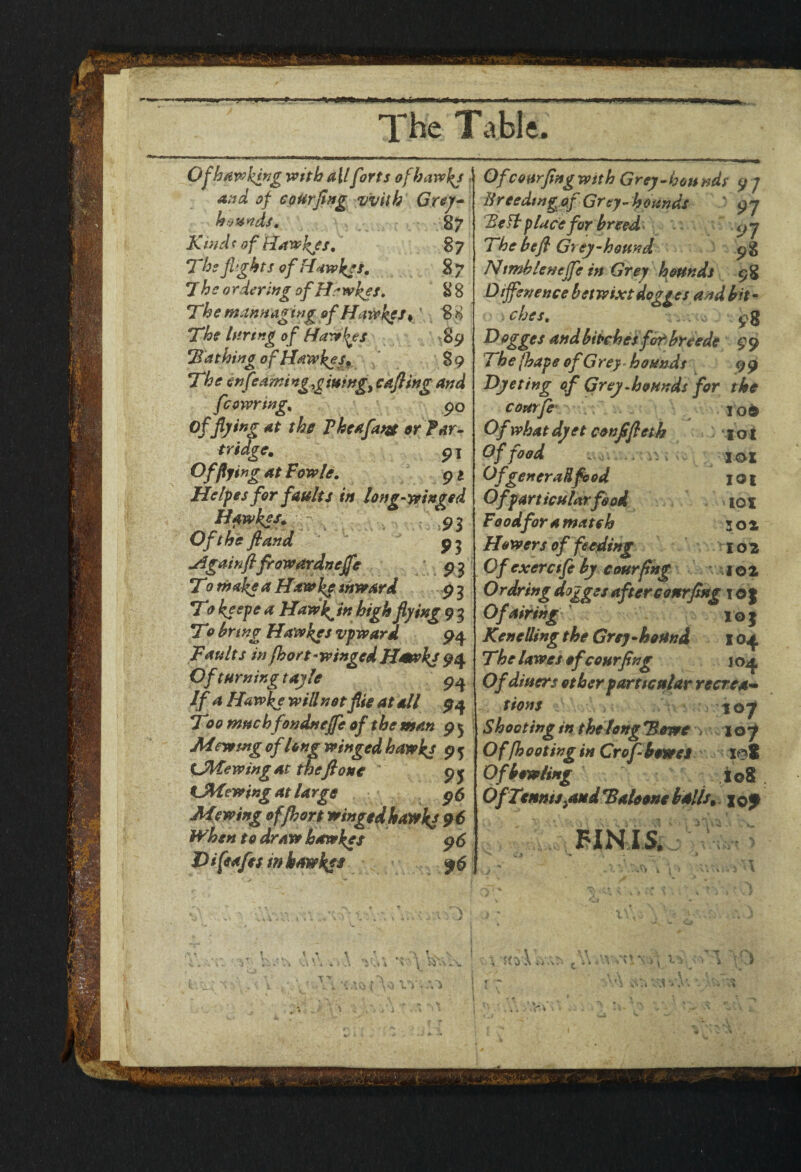 The Table.
Of hawking with all ſorts of hawks
and of courſing vvith Grey-
hounds. 87
Kinds of Hawkes. 87
The flights of Hawkes. 87
The ordering of Hawkes. 88
The mannaging of Hawkes, 88
The luring of Hawkes 89
Bathing of Hawkes, 89
The enſeaming, giuing, caſting and
ſcowring. 90
Of flying at the Pheaſant or Par-
tridge. 91
Of flying at Fowle. 92
Helpes for faults in long-winged
Hawkes. 93
Of the ſtand 93
Againſt frowardneſſe 93
To make a Hawke inward 93
To keepe a Hawk in high flying 93
To bring Hawkes vpward 94
Faults in ſhort-winged Hawks 94
Of turning tayle 94
If a Hawke will not flie at all 94
Too much fondneſſe of the man 95
Mewing of long winged hawks 95
Mewing at the ſtone 95
Mewing at large 96
Mewing of ſhort winged hawks 96
When to draw hawkes 96
Diſeaſes in hawkes 96
Of courſing with Grey-hounds 97
Breeding of Grey-hounds 97
Beſt place for breed 97
The beſt Grey-hound 98
Nimbleneſſe in Grey hounds 98
Diffenence betwixt dogges and bit-
ches. 98
Dogges and bitches for breede 99
The ſhape of Grey-hounds 99
Dyeting of Grey-hounds for the
courſe 100
Of what dyet conſiſteth 101
Of food 101
Of generall food 101
Of particular food 101
Food for a match 102
Howers of feeding 102
Of exerciſe by courſing 102
Ordring dogges after courſing 103
Of airing 103
Kenelling the Grey-hound 104
The lawes of courſing 104
Of diuers other particular recrea-
tions 107
Shooting in the long Bowe 107
Of ſhooting in Croſ-bowes 108
Of bowling 108
Of Tennis, and Baloone balls. 109
FINIS.